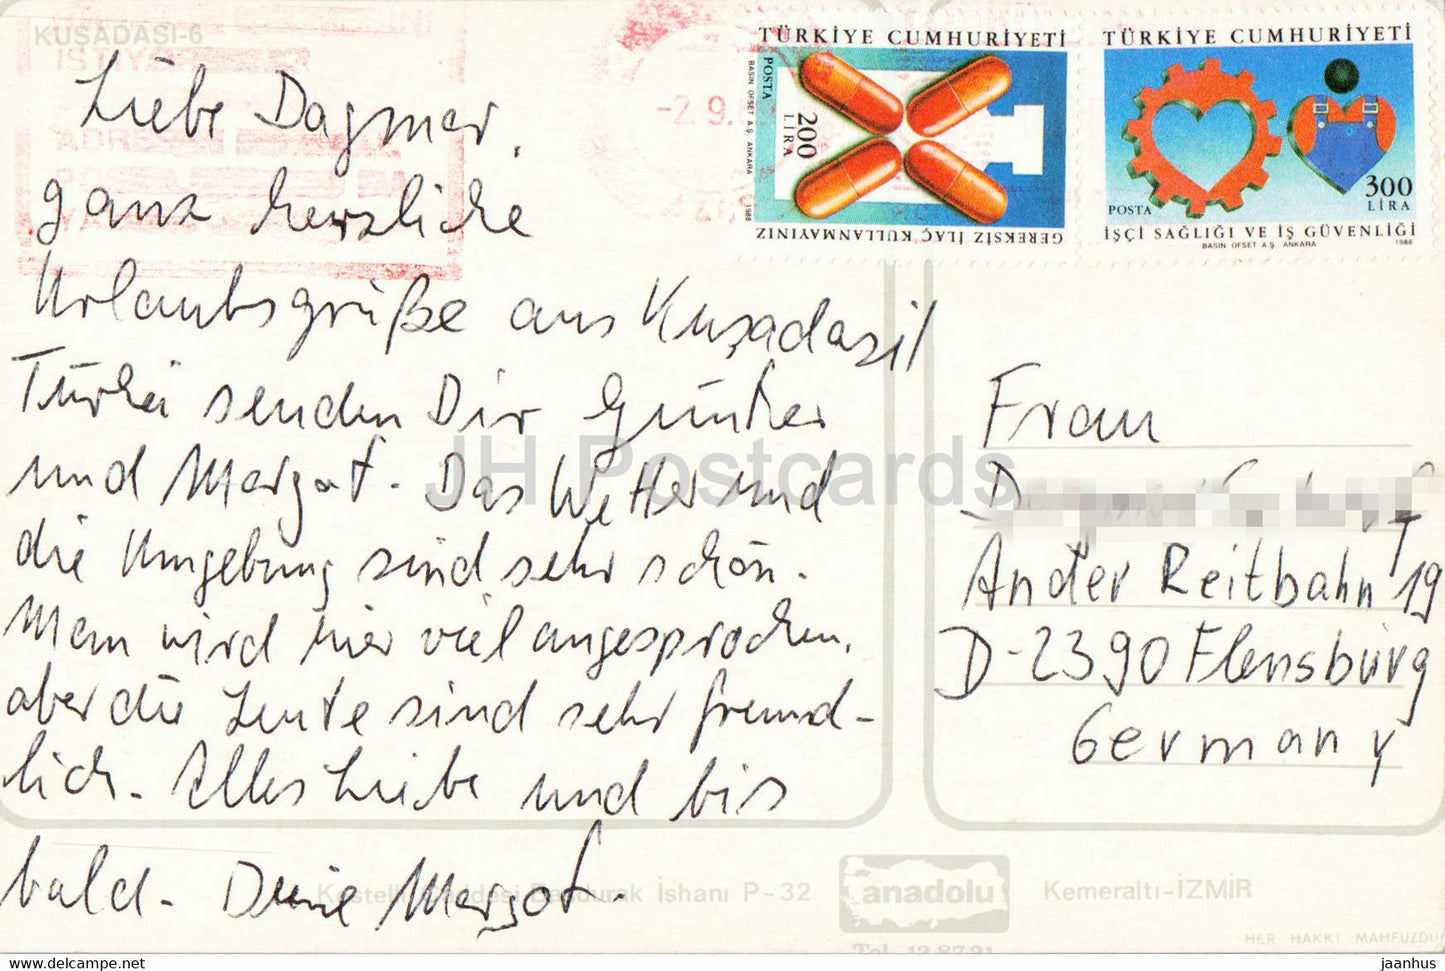 KUŞADASI-6
Liebe Dagmar,
ganz herzliche
Urlaubsgrüße aus Kuşadasi/
Türkei senden Dir Günther
und Margot. Das Wetter und
die Umgebung sind sehr schön.
Man wird hier viel angesprochen,
aber die Leute sind sehr freund-
lich. Alles Liebe und bis
bald. Deine Margot.
-2.9.
TÜRKİYE CUMHURİYETİ
POSTA
200
LİRA
BASIN OFSET A.Ş. ANKARA
1988
GEREKSİZ İLAÇ KULLANMAYINIZ
TÜRKİYE CUMHURİYETİ
POSTA
300
LİRA
İŞÇİ SAĞLIĞI VE İŞ GÜVENLİĞİ
BASIN OFSET A.Ş. ANKARA 1988
Frau
An der Reitbahn 19
D-2390 Flensburg
Germany
JH Postcards
İşhanı P-32
anadolu
Kemeraltı-İZMİR
HER HAKKI MAHFUZDUR
www.jhpostcard.net
jaanhus